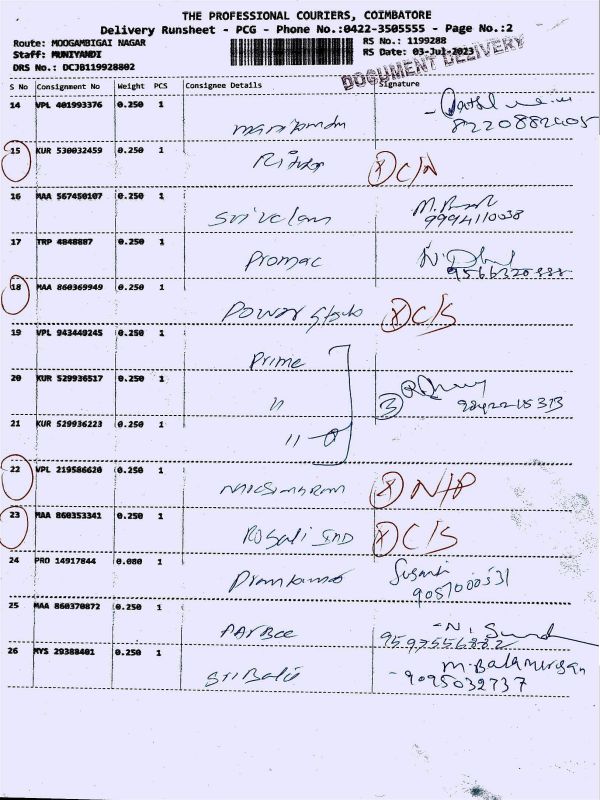 THE PROFESSIONAL COURIERS, COIMBATORE
Delivery Runsheet - PCG - Phone No.:0422-3505555 - Page No.:2
Route: MOOGAMBIGAI NAGAR RS No.: 1199288
Staff: MUNIYANDI RS Date: 03-Jul-2023
DRS No.: DCJB119928802
DOCUMENT DELIVERY
S No Consignment No Weight PCS Consignee Details Signature
14 VPL 401993376 0.250 1
8220882405
15 KUR 530032459 0.250 1
C/N
16 MAA 567450107 0.250 1
Srivelan 9994110038
17 TRP 4848887 0.250 1
Promac
18 MAA 860369949 0.250 1
Power C/S
19 VPL 943440245 0.250 1
Prime
20 KUR 529936517 0.250 1
" 3
21 KUR 529936223 0.250 1
"
22 VPL 219586620 0.250 1
N/P
23 MAA 860353341 0.250 1
C/S
24 PRO 14917844 0.080 1
25 MAA 860370872 0.250 1
- N.
26 MYS 29388401 0.250 1
M. Balamurugan
- 9095032737